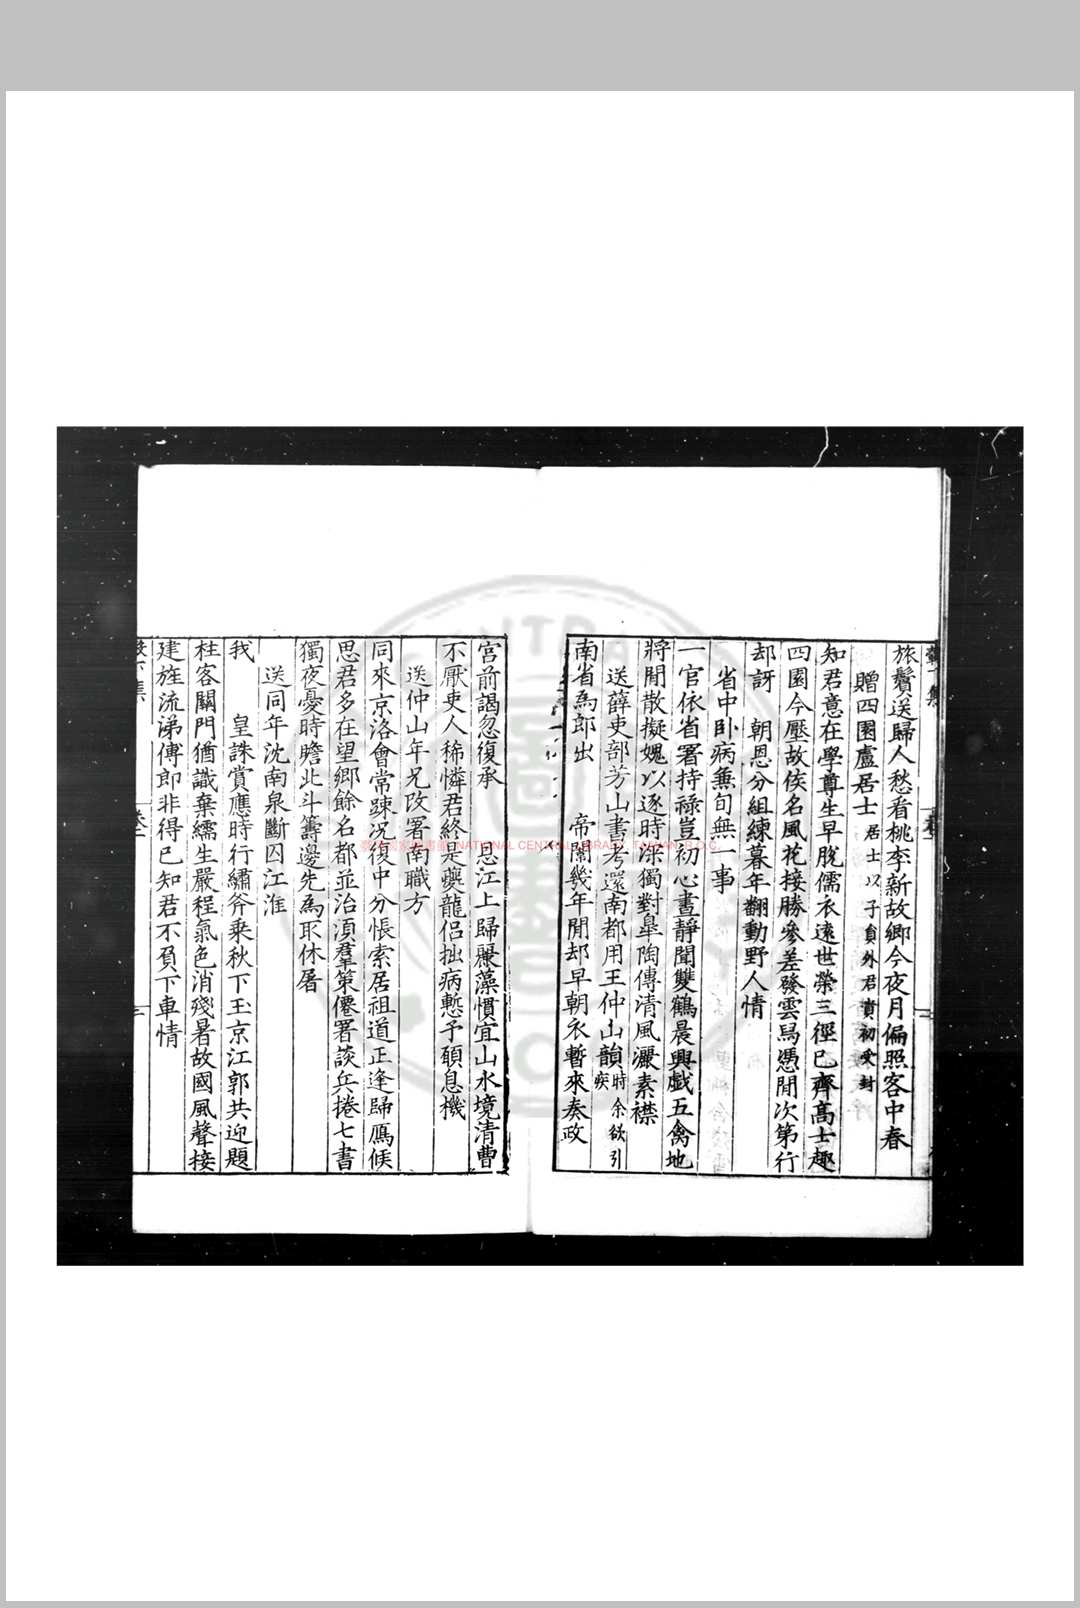 旅鬢送歸人愁看桃李新故鄉今夜月偏照客中春
贈四園盧居士居士以子貟外君貴初受封
知君意在學尊生早脫儒衣遠世榮三徑已齊髙士趣
四園今壓故侯名風花接勝參差發雲鳥憑閒次第行
却訝 朝恩分組練暮年翻動野人情
省中卧病兼旬無一事
一官依省署持祿豈初心晝靜聞雙鶴晨興戱五禽地
將閒散擬媿以逐時深獨對臯陶傳清風灑素襟
送薛吏部芳山書考還南都用王仲山韻時余欲引疾
南省為郎出 帝闈幾年閒却早朝衣暫來奏政
宮前謁忽復承 恩江上歸麗藻慣宜山水境清曹
不厭吏人稀憐君終是夔龍侶拙病慙予頋息機
送仲山年兄改署南職方
同來京洛會常踈况復中分悵索居祖道正逢歸鴈候
思君多在望鄉餘名都並治湏羣策僊署談兵捲七書
獨夜憂時瞻北斗籌邊先為取休屠
送同年沈南泉斷囚江淮
我 皇誅賞應時行繡斧乗秋下玉京江郭共迎題
柱客關門猶識棄繻生嚴程氣色消殘暑故國風聲接
建旌流涕傳郎非得已知君不負下車情
臺灣國家圖書館 NATIONAL CENTRAL LIBRARY, TAIWAN, R.O.C.